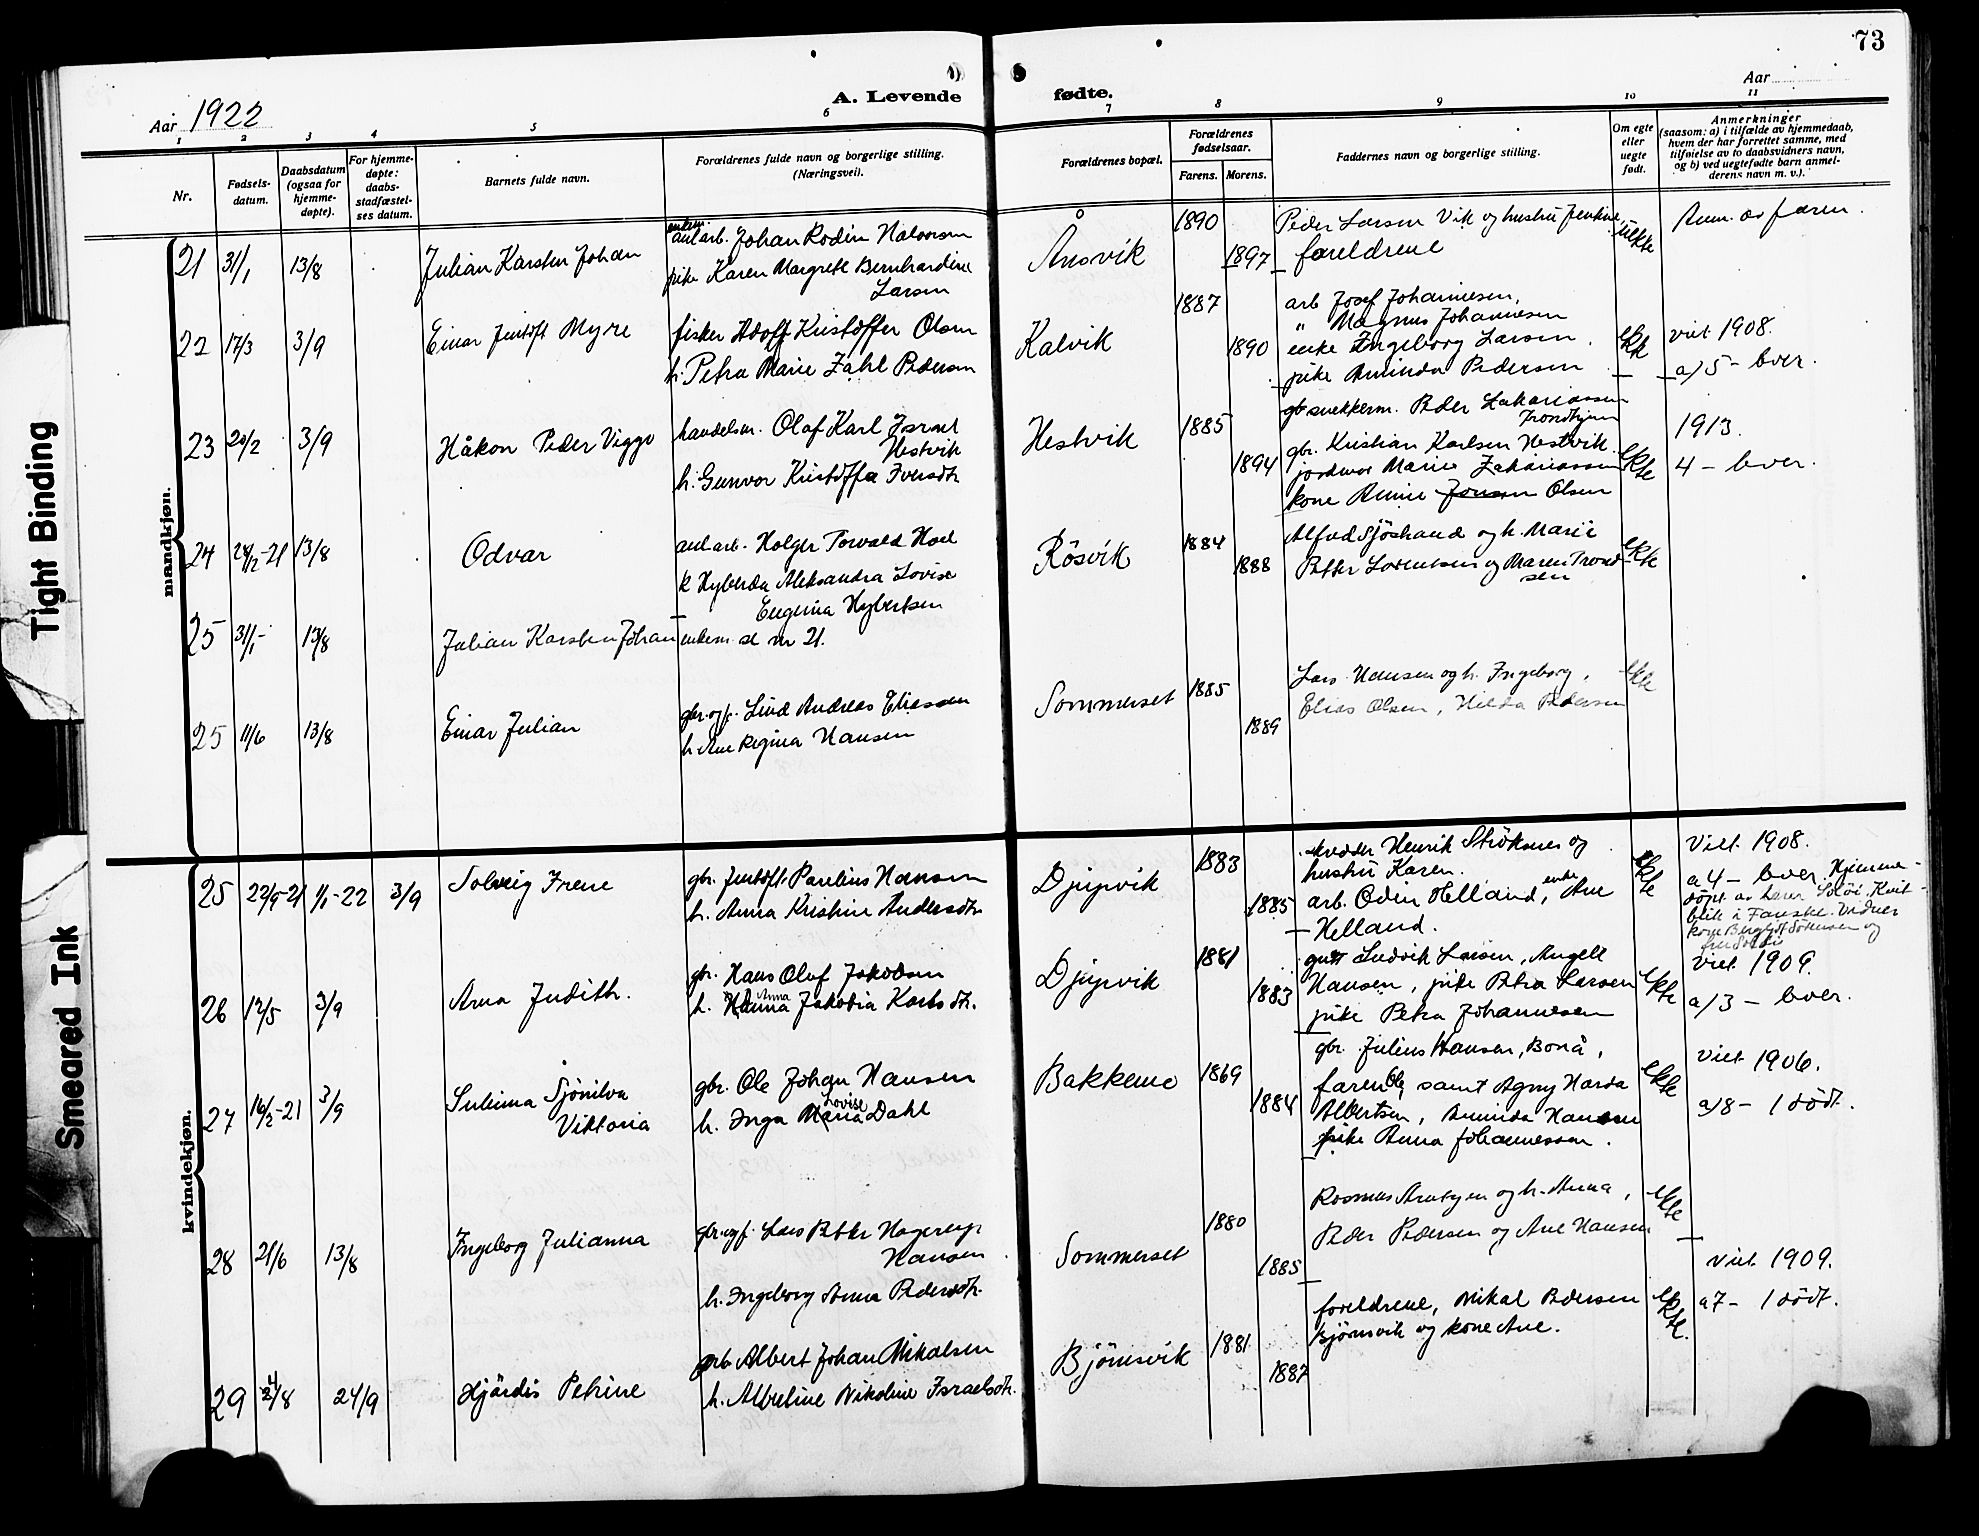 73
Aar 1922
A. Levende fødte.
Aar
1 2 3 4 5 6 7 8 9 10 11
Nr.
Fødsels-
datum.
Daabsdatum
(ogsaa for
hjemme-
døpte).
For hjemme-
døpte:
daabs-
stadfæstel-
ses datum.
Barnets fulde navn.
Forældrenes fulde navn og borgerlige stilling.
(Næringsvei).
Forældrenes bopæl.
Forældrenes
fødselsaar.
Farens. Morens.
Faddernes navn og borgerlige stilling.
Om egte
eller
uegte
født.
Anmerkninger
(saasom: a) i tilfælde av hjemmedaab,
hvem der har forrettet samme, med
tilføielse av to daabsvidners navn,
og b) ved uegtefødte barn anmel-
derens navn m. v.).
mandkjøn.
21 31/1 13/8 Julian Karsten Johan
anl arb. Johan Rodin Halvorsen
pike Karen Margrete Bernhardine
Larsen
Ånsvik
1890
1897
Peder Larsen Vik og hustru
foreldrene
uekte
Anm. av faren.
22 17/3 3/9 Einar Jentoft Myre
fisker Adolf Kristoffer Olsen
h. Petra Marie Zahl Pedersen
Kalvik
1887
1890
arb Josef Johannesen,
" Magnus Johannesen
enke Ingeborg Larsen.
pike Aminda Pedersen
ekte
viet 1908.
a) 5 - lever.
23 20/2 3/9 Håkon Peder Viggo
handelsm. Olaf Karl Israel
Hestvik
h. Gunvor Kristoffa Iversdtr
Hestvik
1885
1894
gb snekkerm. Peder Zakariassen
Trondhjem
gbr. Kristian Karlsen Hestvik
jordmor Marie Zakariassen
kone Annie Jonsen Olsen
ekte
1913.
4 - lever.
24 24/2-21 13/8 Odvar
anl arb. Holger Torvald Hoel
k Hyberda Aleksandra Lovise
Eugenia Hybertsen
Rösvik
1884
1888
Alfred Sjöstrand og h. Marie
Petter Lorentsen og Maren Trond-
sen
ekte
25 31/1- 13/8 Julian Karsten Johan
enkem. se nr 21.
25 11/6 13/8 Einar Julian
gbr. og f. Lind Andreas Eliassen
h. Ane Regina Hansen
Sommerset
1885
1889
Lars Hansen og h. Ingeborg,
Elias Olsen, Hilda Pedersen
ekte
kvindekjøn.
25 22/9-21 1/1-22 3/9 Solveig Irene
gbr. Jentoft Paulius Hansen
h. Anna Kristine Andersdtr.
Djupvik
1883
1885
skredder Henrik Ströksnes og
hustru Karen.
arb. Odin Helland, enke Ane
Helland.
ekte
Viet 1908.
a 4 - lever. Hjemme-
döpt av lærer Solöi, Kvit-
blik i Fauske. Vidner
kone Bergljot Sörensen og
fru Solöi
26 12/5 3/9 Arna Judith.
gbr. Hans Olaf Jakobsen
h. Hanna Anna Jakobia Karlsdtr.
Djupvik
1881
1883
gutt Ludvik Larsen, Angell
Hansen, pike Petra Larsen
pike Petra Johannesen
ekte
viet 1909.
a) 3 - lever.
27 16/2-21 3/9 Sulima Sjönilva
Viktoria
gbr. Ole Johan Hansen
h. Inga Maria Lovise Dahl
Bakkemo
1869
1884
gbr. Julius Hansen, Bonå,
faren Ole, samt Agny Harda
Albertsen, Aminda Hansen
pike Anna Johannessen.
ekte
viet 1906.
a) 8 - 1 död.
28 21/6 13/8 Ingeborg Julianna
gbr. og f. Lars Petter Hagerup
Hansen
h. Ingeborg Anna Pedersdtr.
Sommerset
1880
1885
Rasmus Arntzen og h. Anna,
Peder Pedersen og Ane Hansen
ekte
29 24/8 24/9 Hjördis Petrine
arb Albert Johan Mikalsen
h. Albertine Nikoline Israelsdtr.
Björnsvik
1881
1887
foreldrene, Mikal Pedersen
Björnsvik og kone Ane.
ekte.
viet 1909.
a 7 - 1 död.
Tight Binding
Smeared Ink